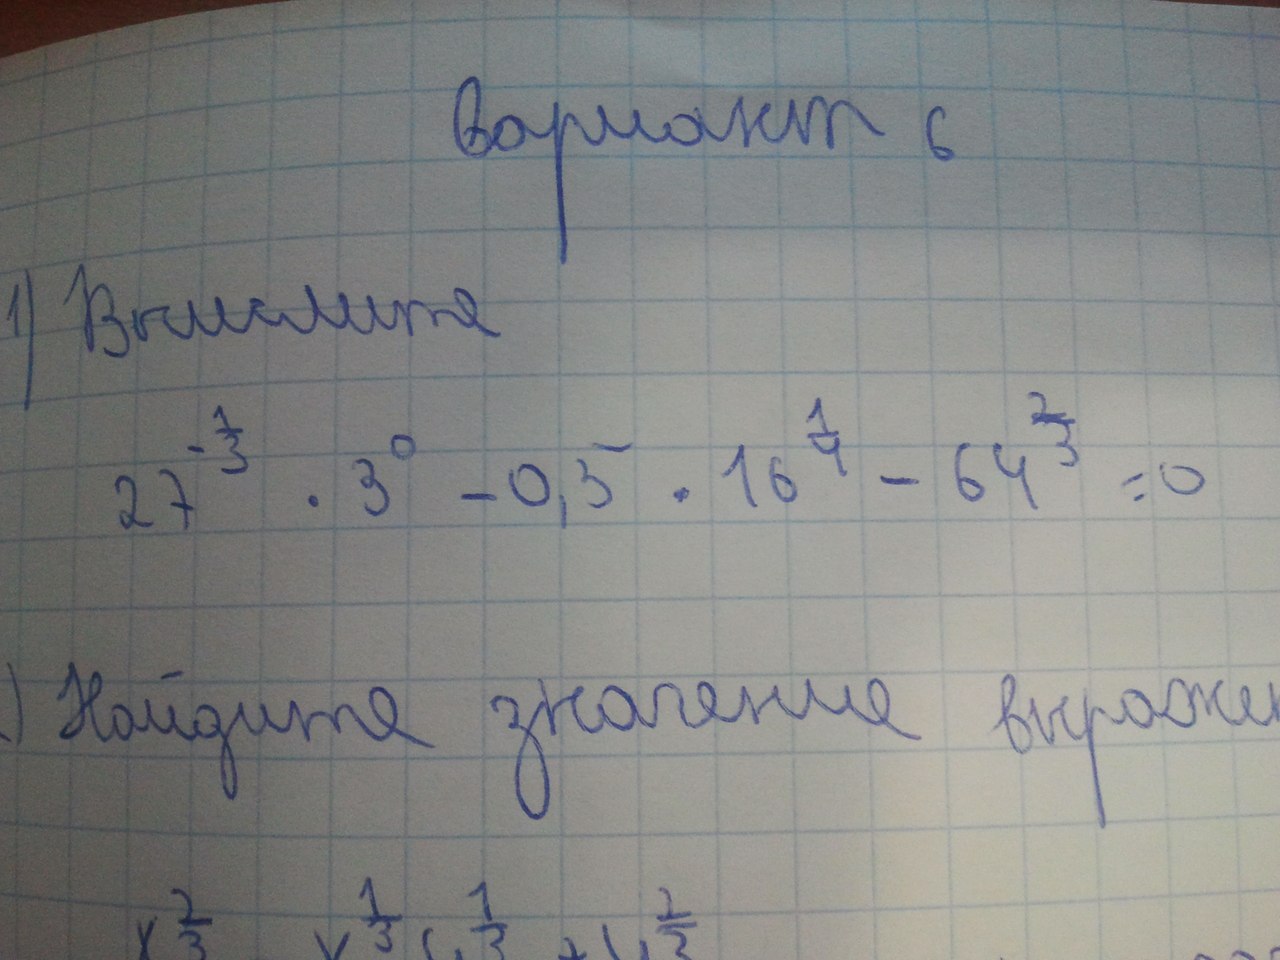 Вариант 6
1) Вычислите
27^{-\frac{1}{3}} · 3^0 - 0,5 · 16^{\frac{1}{4}} - 64^{\frac{2}{3}} = 0
) Найдите значение выражен
x^{\frac{2}{3}} x^{\frac{1}{3}} y^{\frac{1}{3}} + y^{\frac{2}{3}}